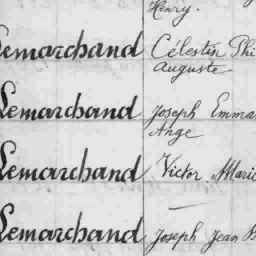 Henry.
Lemarchand Célestin Phi
Auguste
Lemarchand Joseph Emma
Ange
Lemarchand Victor Marie
Lemarchand Joseph Jean B